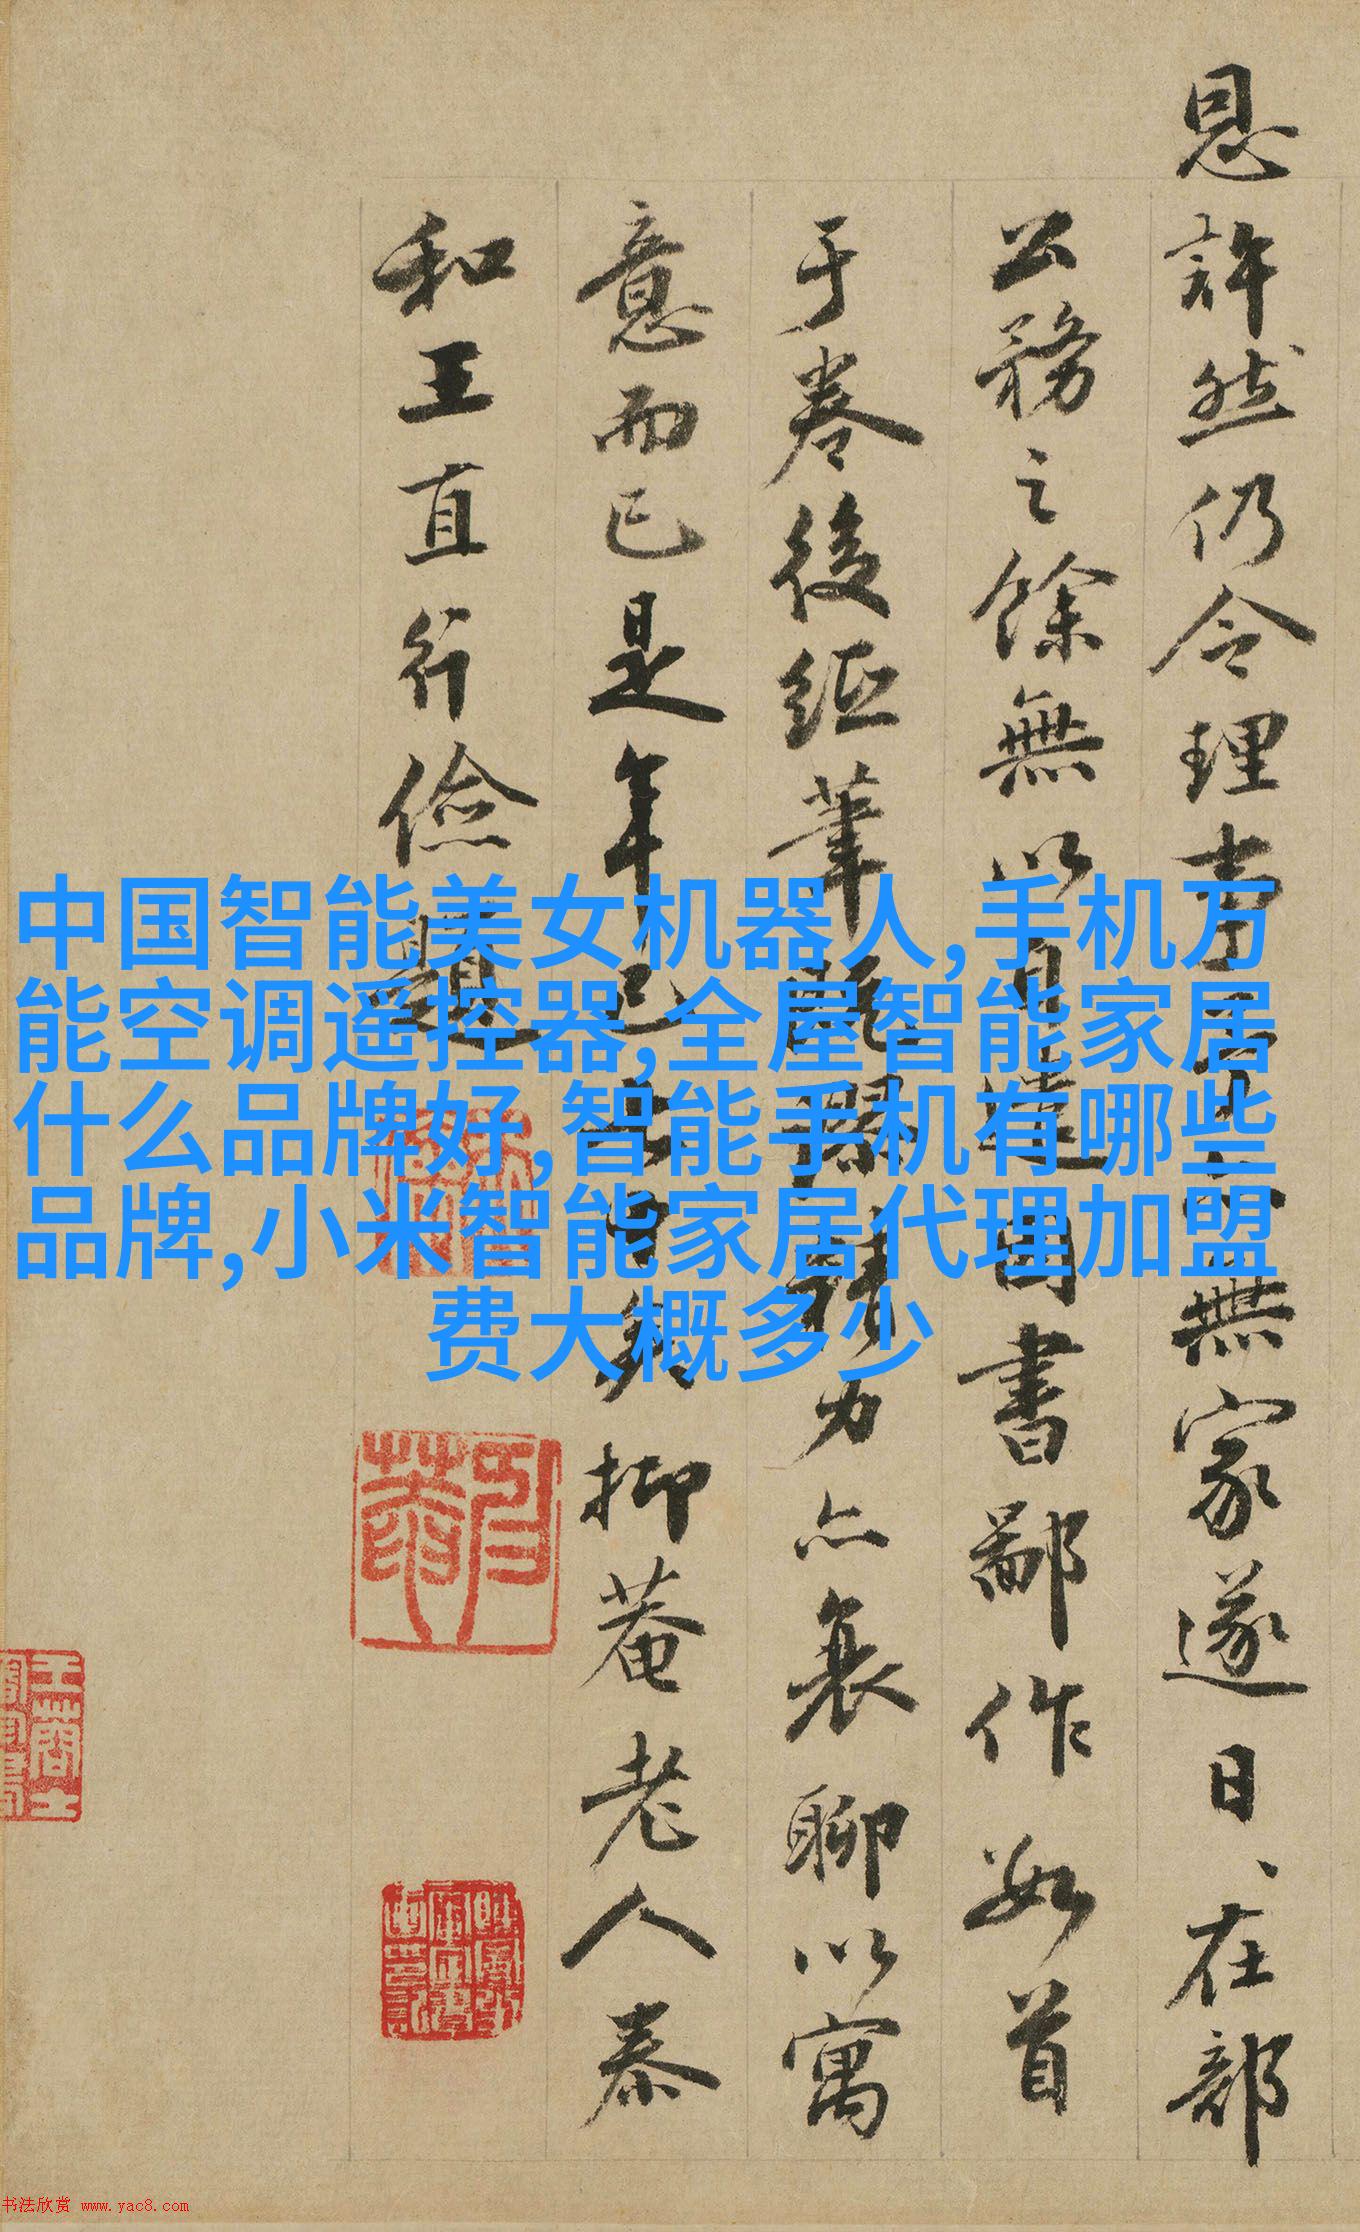 恩許然仍令理無家遂日在部
公務之餘無以自遣因書鄙作數首
于卷後紙筆精力亦衰聊以寓
意而已是年已七十矣抑菴老人泰
和王直行儉題
中国智能美女机器人,手机万
能空调遥控器,全屋智能家居
什么品牌好,智能手机有哪些
品牌,小米智能家居代理加盟
费大概多少
书法欣赏 www.yac8.com